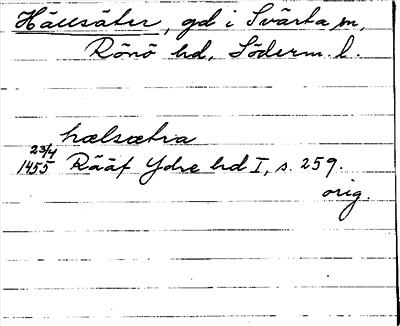 Hällsäter, gd i Svärta sn,
Rönö hd, Söderm. l.
hælsætra
23/4
1455 Rääf Ydre hd I, s. 259.
orig.